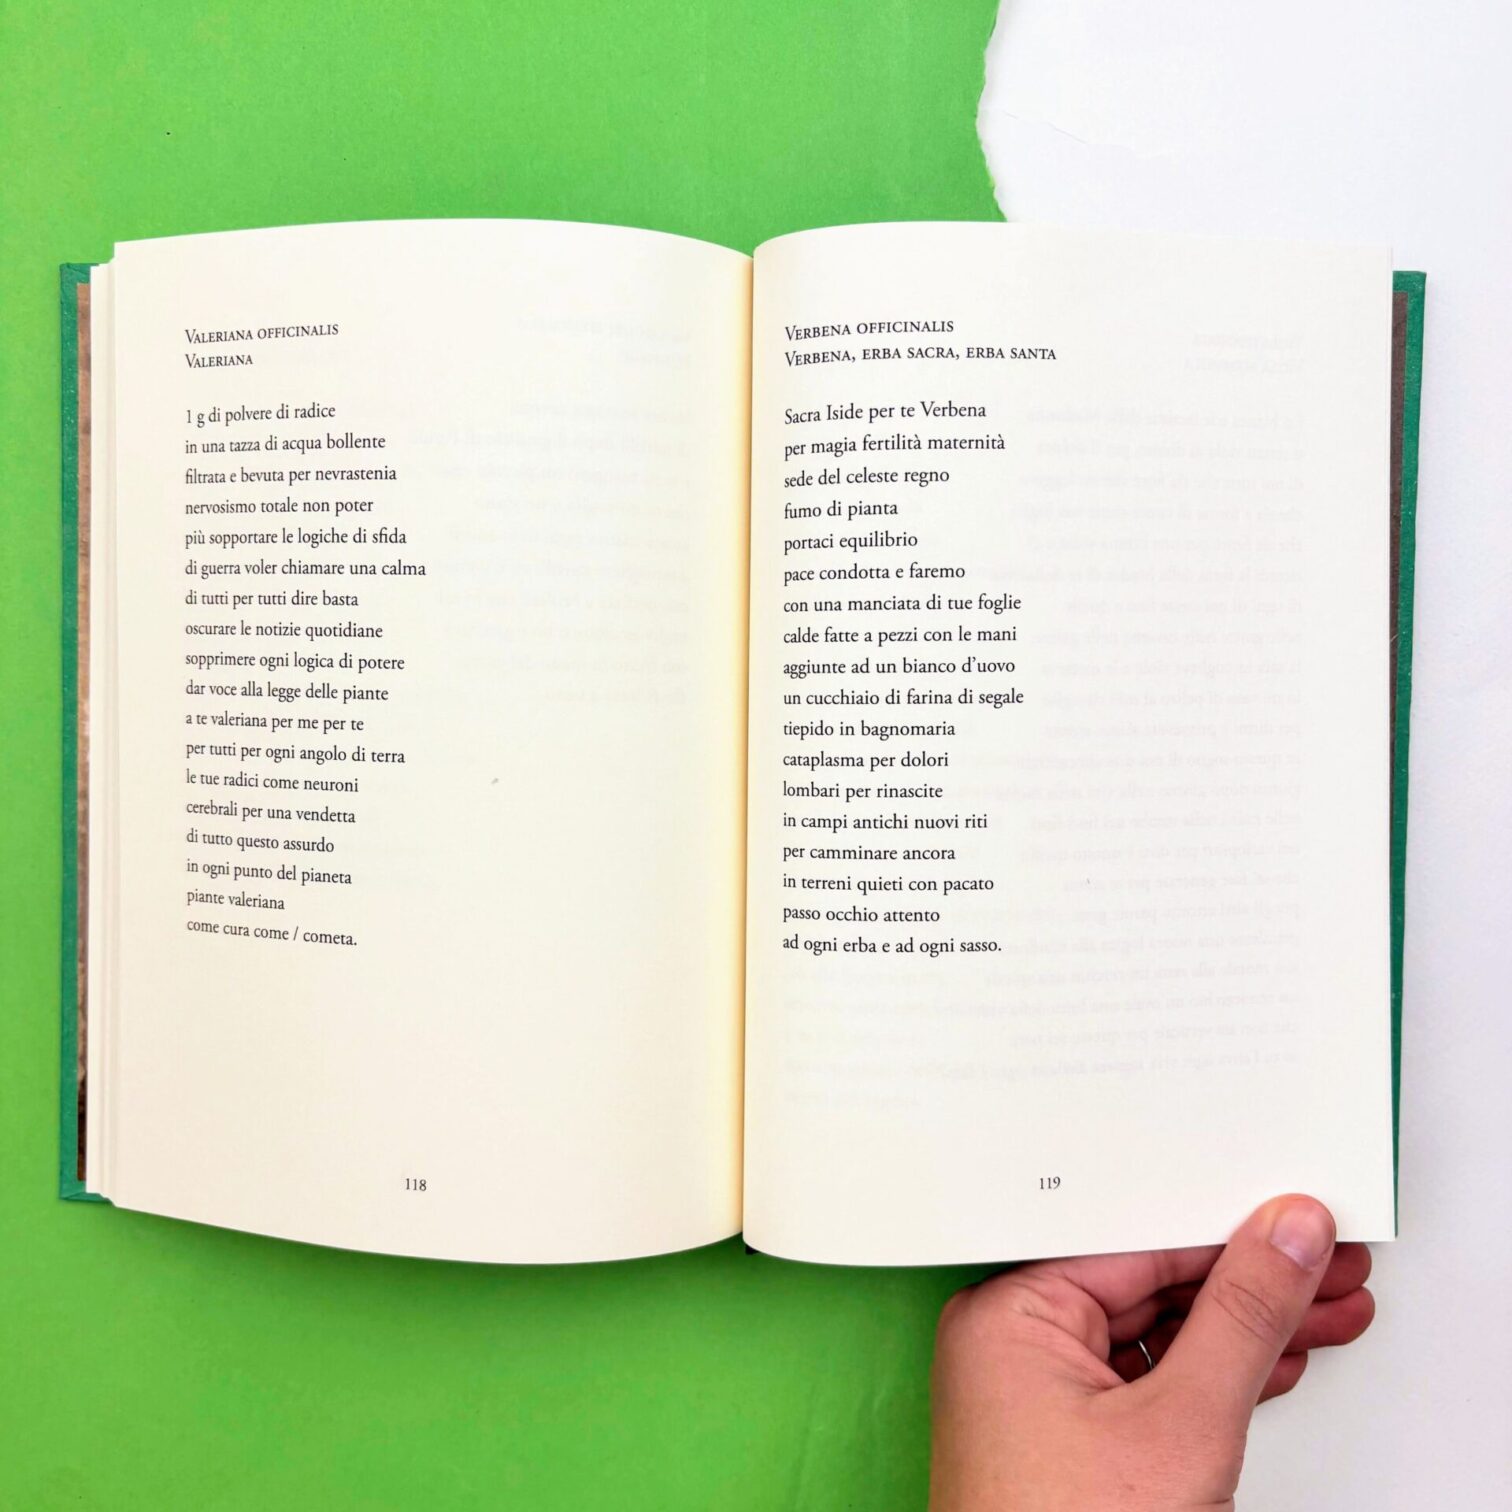 Valeriana officinalis
Valeriana
1 g di polvere di radice
in una tazza di acqua bollente
filtrata e bevuta per nevrastenia
nervosismo totale non poter
più sopportare le logiche di sfida
di guerra voler chiamare una calma
di tutti per tutti dire basta
oscurare le notizie quotidiane
sopprimere ogni logica di potere
dar voce alla legge delle piante
a te valeriana per me per te
per tutti per ogni angolo di terra
le tue radici come neuroni
cerebrali per una vendetta
di tutto questo assurdo
in ogni punto del pianeta
piante valeriana
come cura come / cometa.
118
Verbena officinalis
Verbena, erba sacra, erba santa
Sacra Iside per te Verbena
per magia fertilità maternità
sede del celeste regno
fumo di pianta
portaci equilibrio
pace condotta e faremo
con una manciata di tue foglie
calde fatte a pezzi con le mani
aggiunte ad un bianco d'uovo
un cucchiaio di farina di segale
tiepido in bagnomaria
cataplasma per dolori
lombari per rinascite
in campi antichi nuovi riti
per camminare ancora
in terreni quieti con pacato
passo occhio attento
ad ogni erba e ad ogni sasso.
119